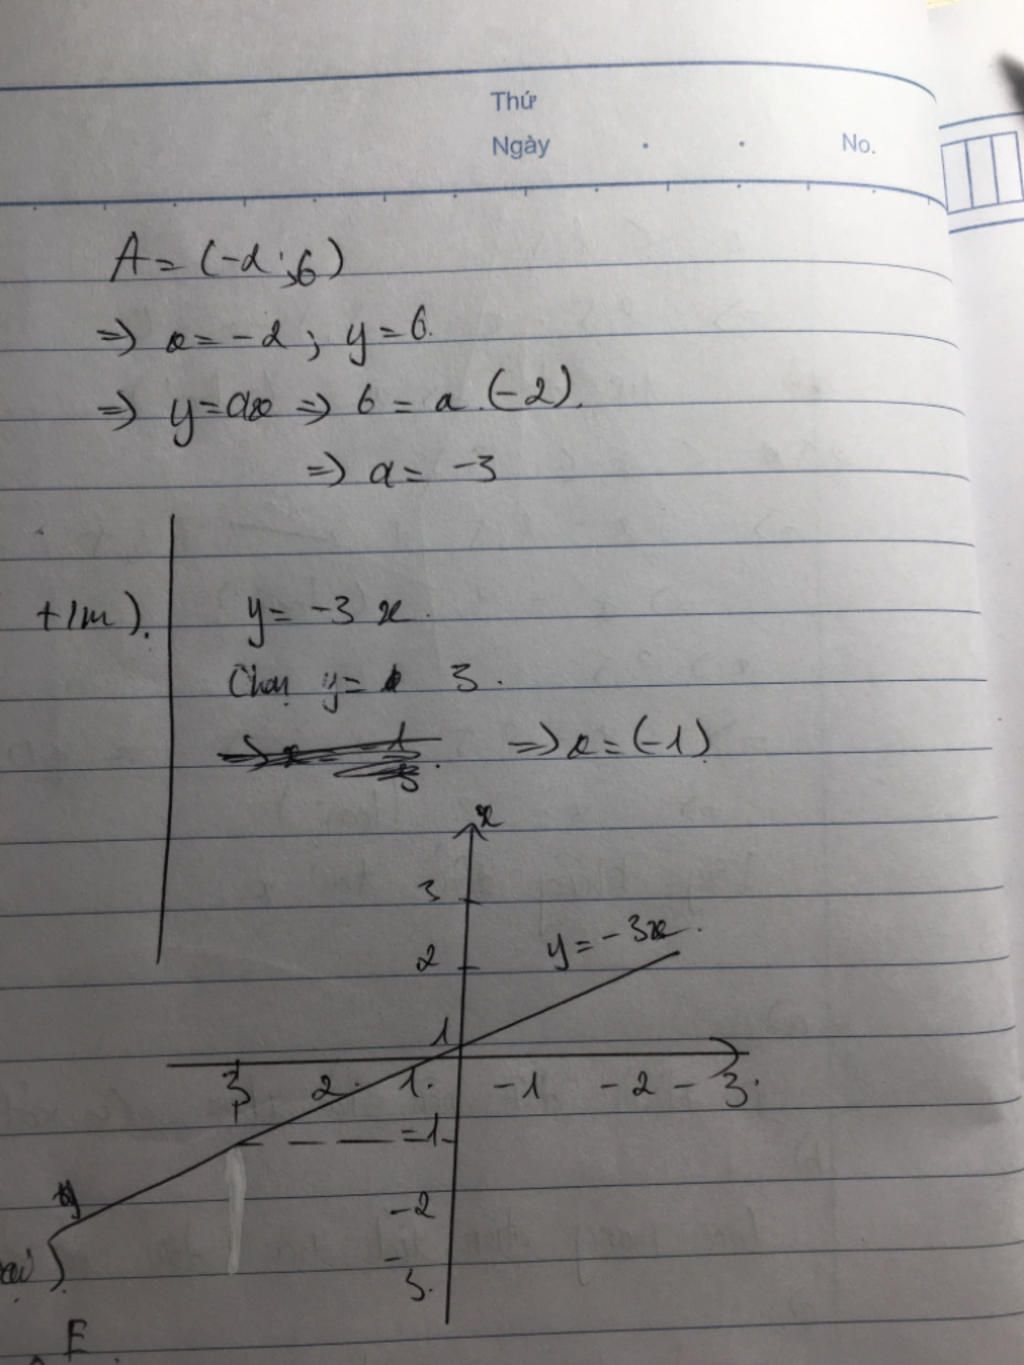 Thứ
Ngày No.
A = (-2 ; 6)
=> x = -2 ; y = 6.
=> y = ax => 6 = a . (-2).
=> a = -3
t/m).
y = -3 x.
Chọn y = 3.
=> x = (-1)
x
3
2
y = -3x.
1
3 2 1. -1 -2 -3.
-1
-2
-3.
E